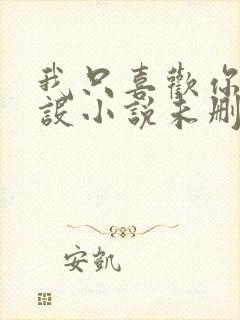 我只喜歡你
設小說未刪
安凱